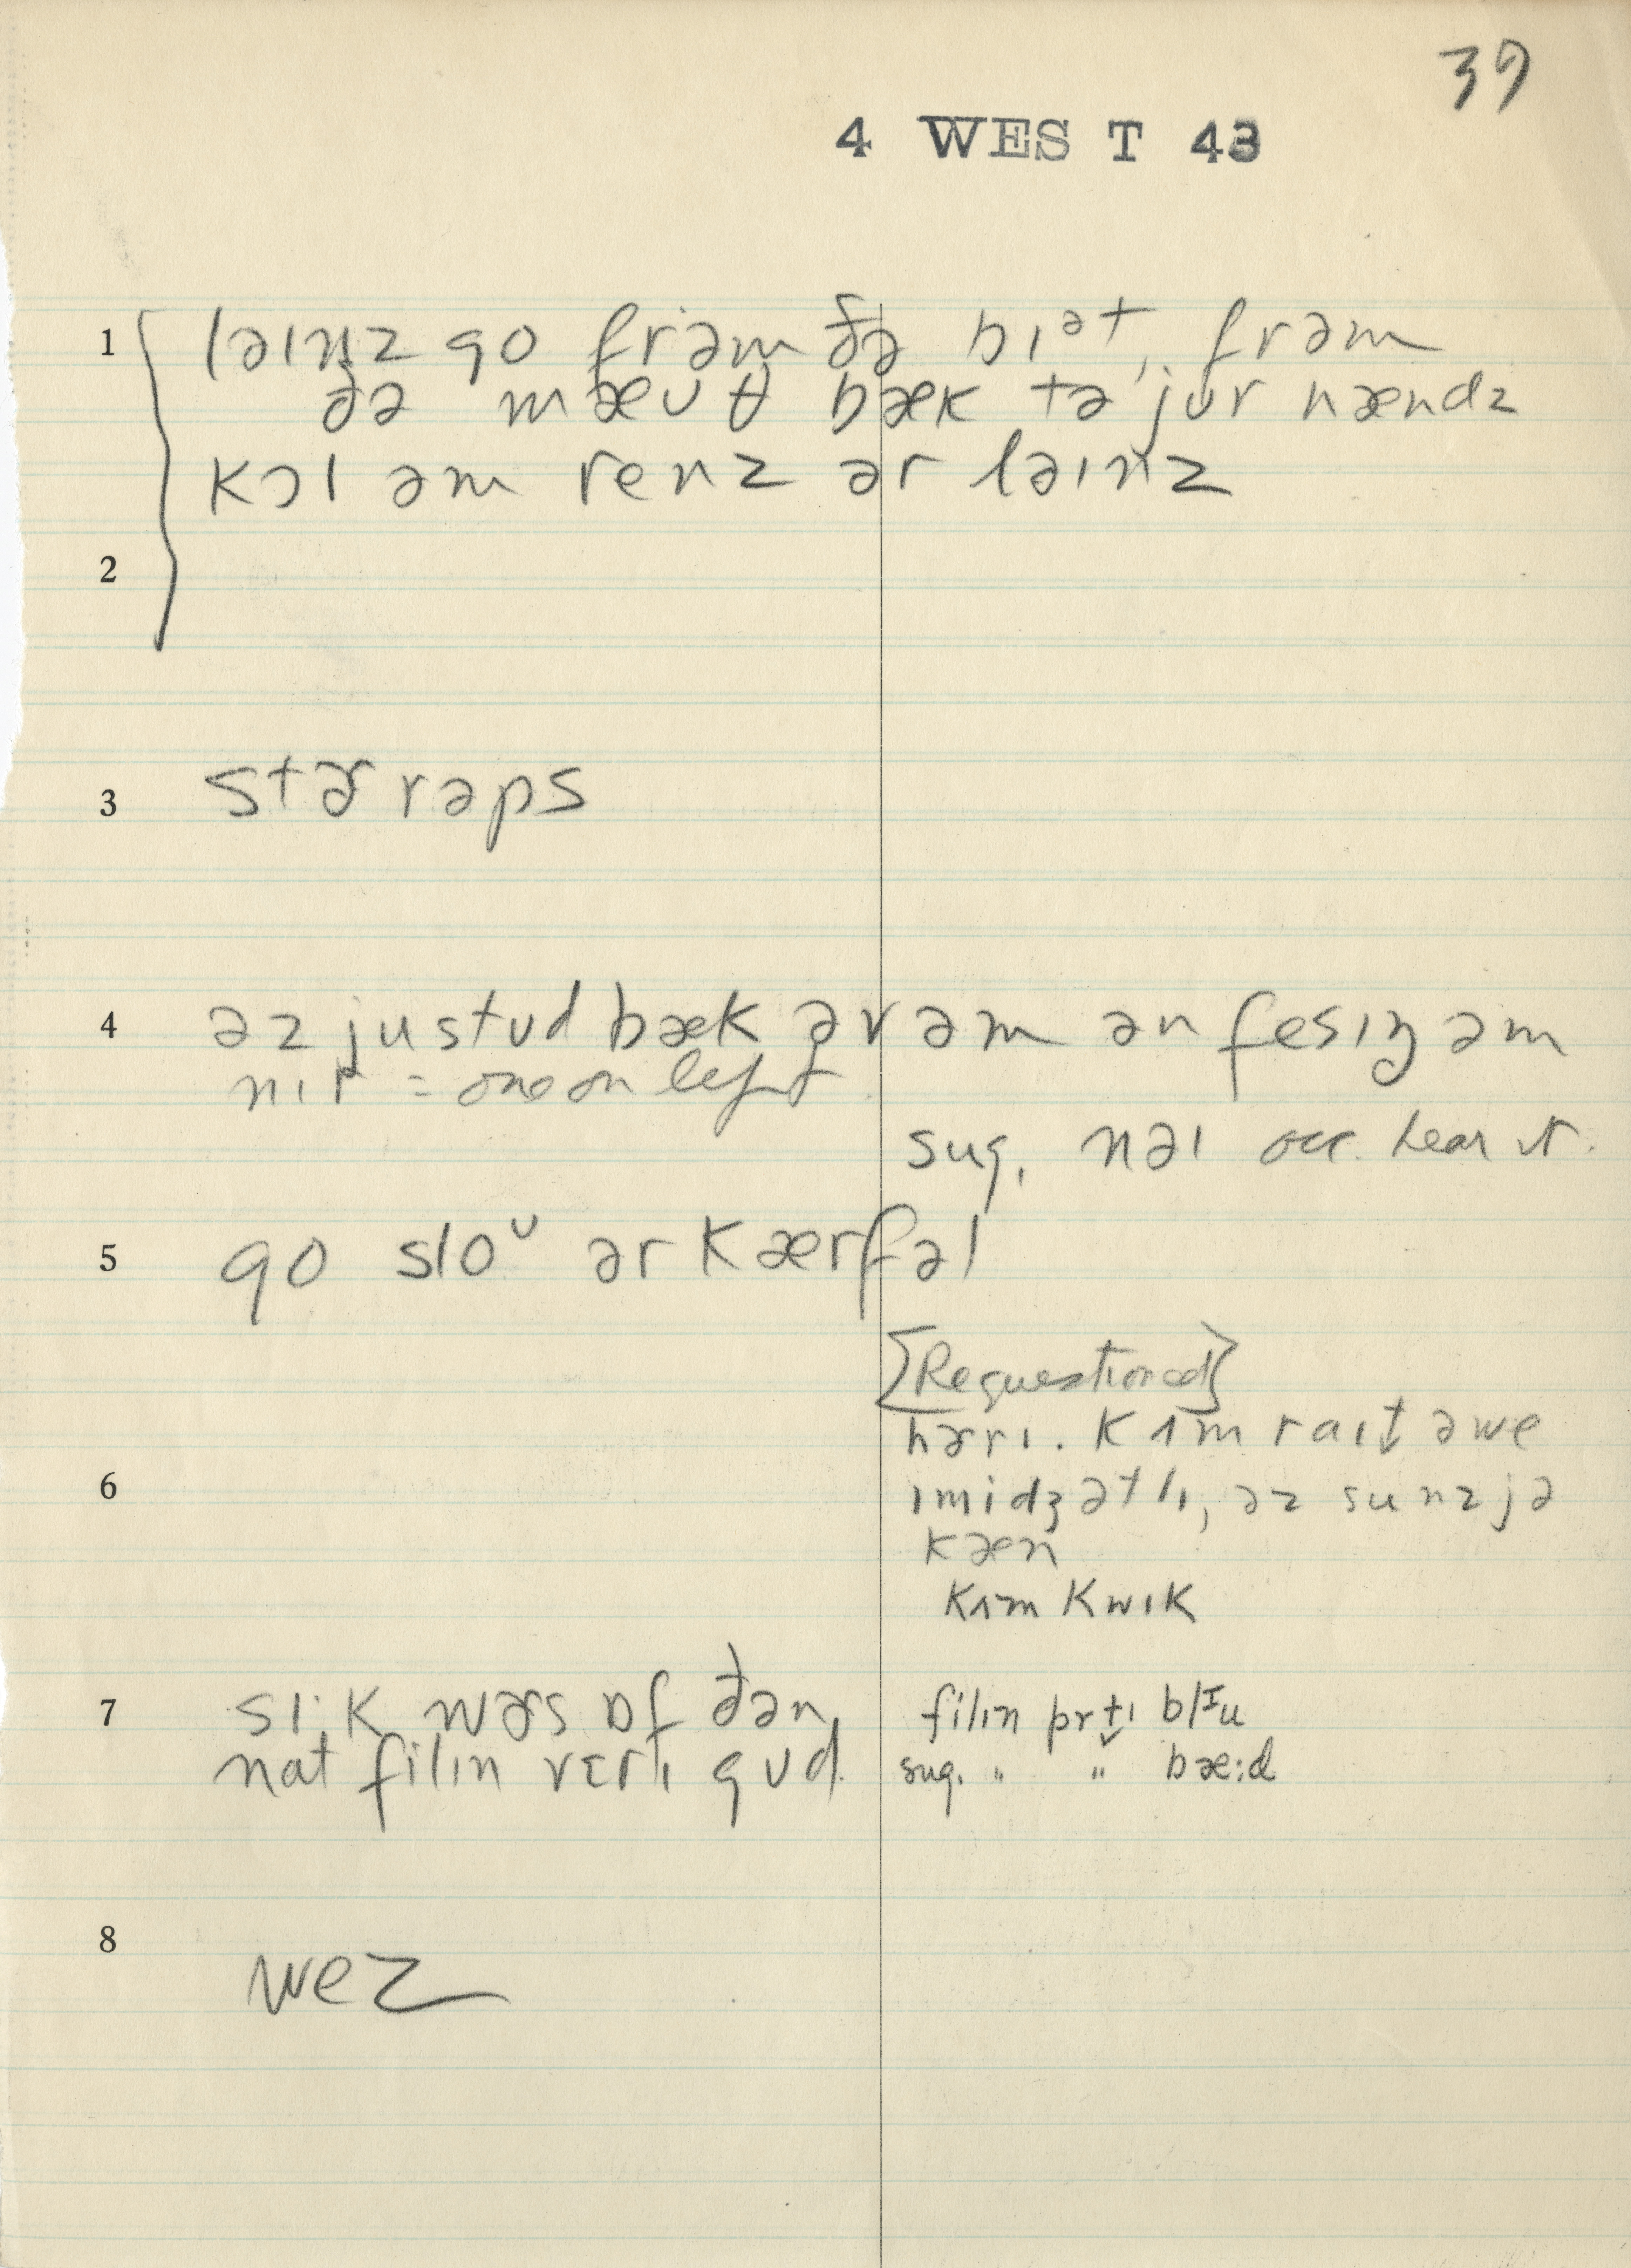 39
4 WEST 43
1 ləɪnz go frəm ðə bɪᵊt, frəm
ðə mæʊθ bæk tə jʊr hændz
kɔl əm renz ər ləɪnz
2
3 stɚrəps
4 əz ju stʊd bæk əv əm ən fesɪŋ əm
nɪr = one on left
sug. nəɪ occ. hear it.
5 go sloᶷ ər kærfəl
[Requestioned]
hɚrɪ. kʌm raɪt əwe
6 ɪmidʒətlɪ, əz sunz jə
kæn
kʌm kwɪk
7 sɪ·k wɚs ɒf ðən
nat filɪn vɛrɪ gʊd.
filɪn prtɪ blᶦu
sug. " " bæ:d
8 wez